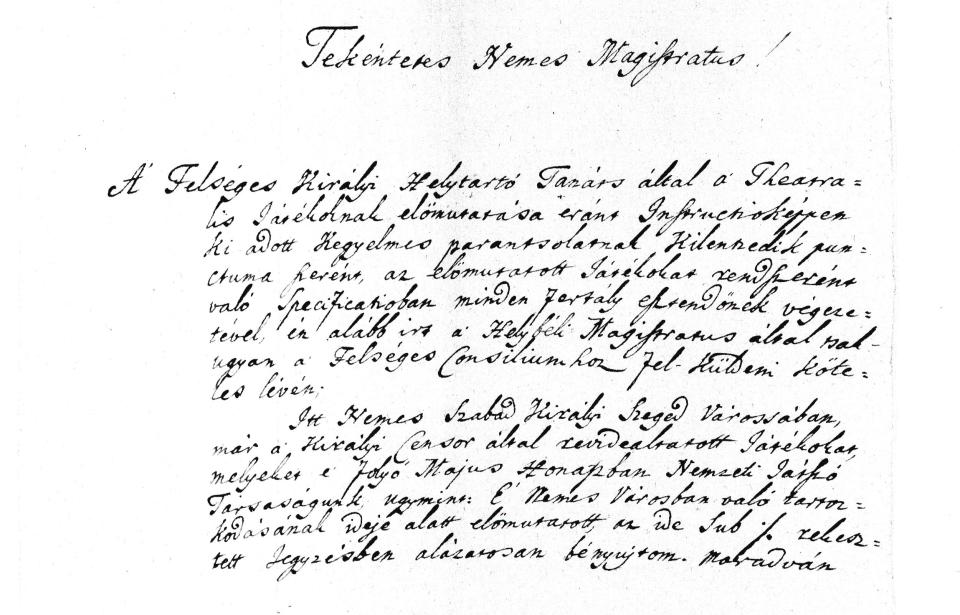 Tekéntetes Nemes Magistratus!
A' Felséges Királyi Helytartó Tanáts által a' Theatra=
lis Játékoknak előmutatása eránt Instructioképpen
ki adott Kegyelmes parantsolatnak Kilentzedik pun=
ctuma szerént, az előmutatott Játékokat rendszerént
való Specificatioban minden fertály esztendőnek végeze=
tével, én alább irt a' Helybéli Magistratus által tsak=
ugyan a' Felséges Consiliumhoz fel-Küldeni köte=
les lévén;
Itt Nemes Szabad Királyi Szeged Várossában,
már a' Királyi Censor által revidealtatott Játékokat,
melyeket e' folyó Majus Honapban Nemzeti Játszó
Társaságunk, ugymint: E' Nemes Városban való tartoz=
kodásának ideje alatt előmutatott, az ide Sub ·/. rekesz=
tett Jegyzésben alázatosan bényujtom. maradván